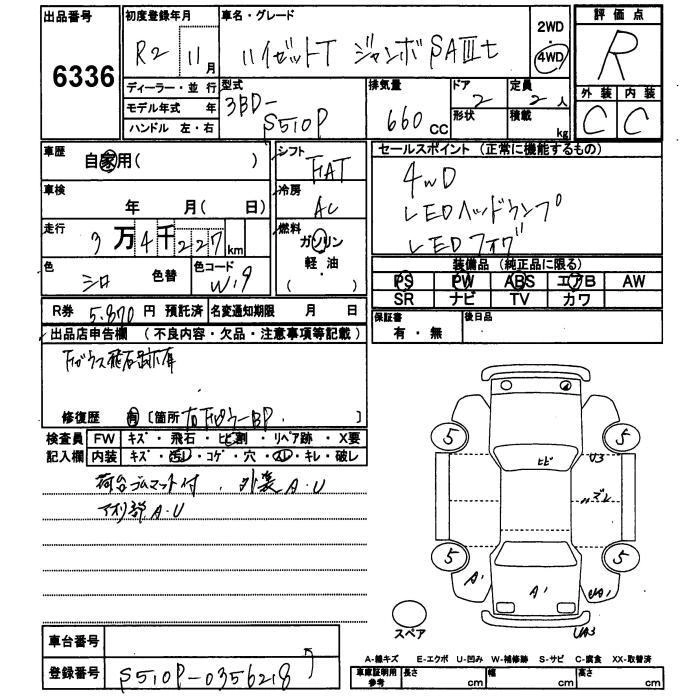 出品番号 6336
初度登録年月 R2年 11月
車名・グレード ハイゼットT ジャンボSAⅢt
2WD
4WD
評価点 R
外装 C 内装 C
ディーラー・並行
モデル年式 年
ハンドル 左・右
型式 3BD-S510P
排気量 660cc
ドア 2
形状
定員 2人
積載 kg
車歴 自家用( )
車検 年 月( 日)
走行 3万4千227km
色 シロ 色替
色コード W19
シフト FAT
冷房 AC
燃料 ガソリン
軽・油
( )
セールスポイント (正常に機能するもの)
4WD
LEDヘッドランプ
LEDフォグ
装備品 (純正品に限る)
PS PW ABS エアB AW
SR ナビ TV カワ
R券 5.870円 預託済 名変通知期限 月 日
保証書 有・無
後日品
出品店申告欄 (不良内容・欠品・注意事項等記載)
Fガラス飛石跡
修復歴 有 [箇所 ]
検査員記入欄
FW キズ・飛石・ヒビ割・リペア跡・X要
内装 キズ・汚レ・コゲ・穴・スレ・キレ・破レ
荷台ゴムマット付 . 外装A.U
A.U
5 5
ヒビ U3
ズレ
5 5
A1 A1 UA1
UA3
スペア
車台番号
登録番号 S510P-0356218
A-線キズ E-エクボ U-凹み W-補修跡 S-サビ C-腐食 XX-取替済
車庫証明用参考 長さ cm 幅 cm 高さ cm